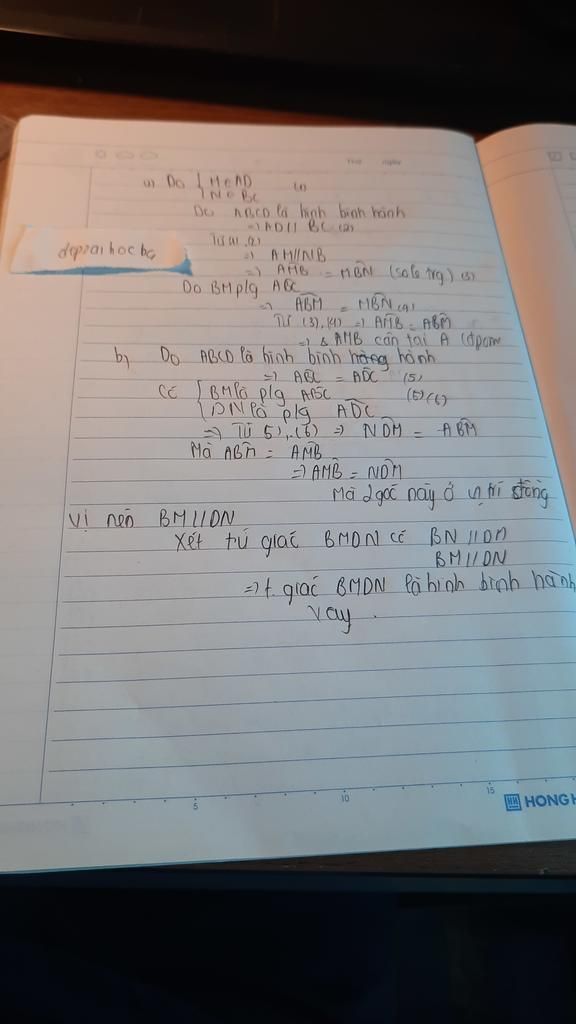 Thứ ngày
a) Do { M∈AD
N∈BC (1)
Do ABCD là hình bình hành
⇒ AD // BC (2)
Từ (1), (2)
⇒ AM//NB
⇒ AMB = MBN (so le trg) (3)
depzai hoc bg
Do BM p/g ABC
⇒ ABM = MBN (4)
Từ (3), (4) ⇒ AMB = ABM
⇒ Δ AMB cân tại A (đpcm
b, Do ABCD là hình bình hàng hành
⇒ ABC = ADC (5)
Có { BM là p/g ABC (5)(6)
DN là p/g ADC
⇒ Từ 5), (6) ⇒ NDM = ABM
Mà ABM = AMB
⇒ AMB = NDM
Mà 2 góc này ở vị trí đồng
vị nên BM // DN
Xét tứ giác BMDN có BN // DM
BM // DN
⇒ t. giác BMDN là hình bình hành
Vay.
5 10 15
HH HONG H